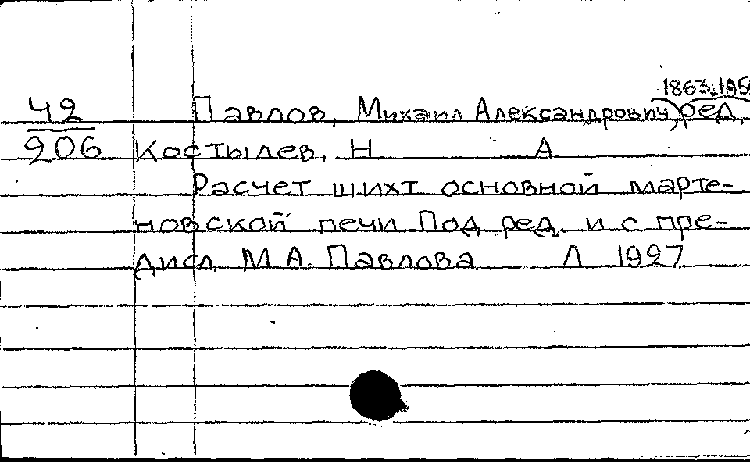 1863-195
42 Павлов, Михаил Александрович, ред.
906 Костылев, Н А
Расчет шихт основной марте-
новской печи Под ред. и с пре-
дисл. М.А. Павлова Л 1927